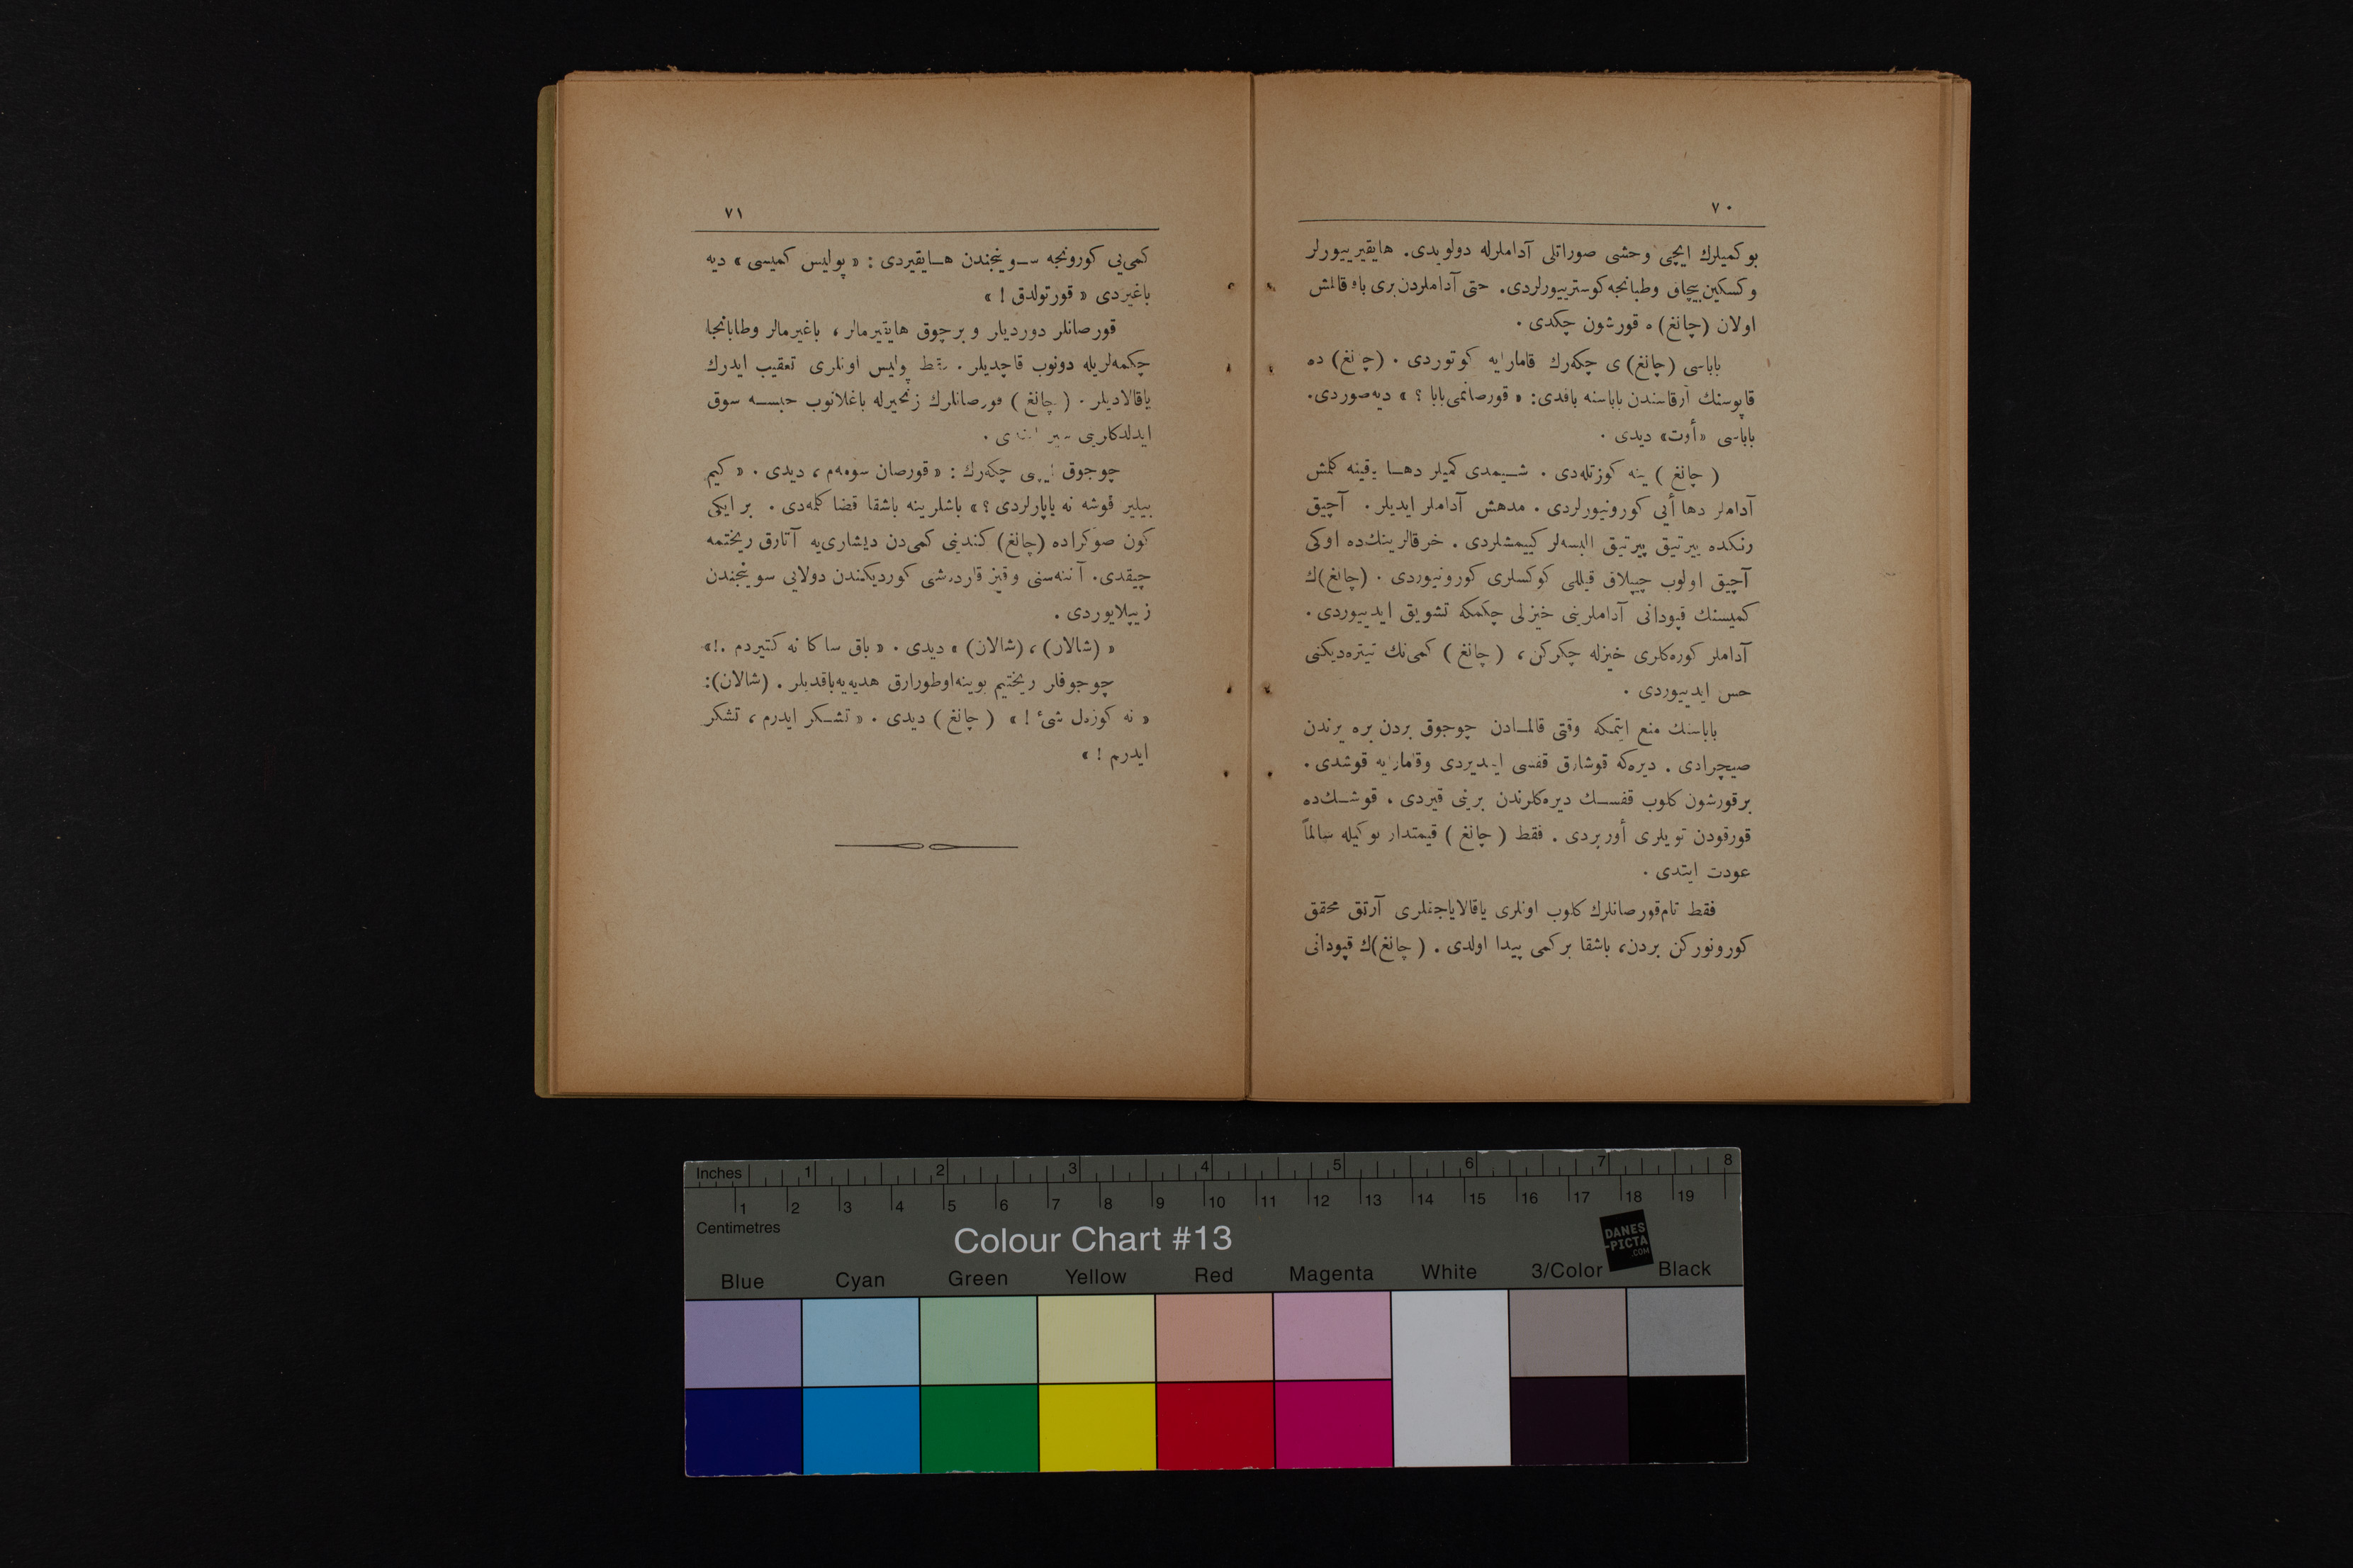 ٧٠
بو كميلرك ايچی وحشی صوراتلی آداملرله دولویدی. هایقیریيورلر
و كسكين بیچاق وطبانجه كوستریيورلردی. حتی آداملردن بری باقه قالمش
اولان (چانغ) ه قورشون چكدی .
باباسی (چانغ) ی چكه‌رك قامارایه كوتوردی . (چانغ) ده
قاپوسنك آرقاسندن باباسنه باقدی: « قورصانمی بابا ؟ » ديه صوردی.
باباسی «أوت» ديدی .
( چانغ ) ينه كوزتله‌دی . شـيمدی كميلر دهـا يقينه كلمش
آداملر دها أیی كورونيورلردی . مدهش آداملر ايديلر . آچيق
رنكده ييرتيق پيرتيق البسه‌لر كييمشلردی . خرقالرينك‌ده اوكی
آچيق اولوب چيپلاق قيللی كوكسلری كورونيوردی . (چانغ)ك
كميسنك قپودانی آداملرينی خيزلی چكمكه تشويق ايدييوردی .
آداملر كوره‌كلری خيزله چكركن، (چانغ) كمی‌نك تيتره‌ديكنی
حس ايدييوردی .
باباسنك منع ايتمكه وقتی قالمـادن چوجوق بردن بره يرندن
صيچرادی . ديره‌كه قوشارق قفسی اينديردی وقامارايه قوشدی .
برقورشون كلوب قفسـك ديره‌كلرندن برينی قيردی . قوشـك‌ده
قورقودن تويلری أوربردی . فقط ( چانغ ) قيمتدار يوكيله سالماً
عودت ايتدی .
فقط تام‌قورصانلرك كلوب اونلری ياقالاياجقلری آرتق محقق
كورونوركن بردن، باشقا بر كمی پيدا اولدی . ( چانغ)ك قپودانی
٧١
كمی‌يی كورونجه سـوينجندن هـايقيردی : « پوليس كميسی » ديه
باغيردی « قورتولدق ! »
قورصانلر دورديلر و بر چوق هايقيرمالر ، باغيرمالر وطابانجا
چكمه‌لريله دونوب قاچديلر . فقط پوليس اونلری تعقيب ايدرك
ياقالاديلر . ( چانغ ) قورصانلرك زنجيرله باغلانوب حبسـه سوق
ايدلدكلرينی سير ايتدی .
چوجوق ايچنی چكه‌رك : « قورصان سومه‌م ، ديدی . « كيم
بيلير قوشه نه ياپارلردی ؟ » باشلرينه باشقا قضا كلمه‌دی . بر ايكی
كون صوكراده (چانغ) كندينی كمی‌دن ديشاری‌يه آتارق ريختمه
چيقدی. آننه‌سنی وقيز قاردشی كورديكندن دولايی سوينجندن
زيپلايوردی .
« (شالان) ، (شالان) » ديدی . « باق ساكا نه كتيردم .!»
چوجوقلر ريختيم بوينه‌اوطورارق هديه‌يه‌باقديلر . (شالان):
« نه كوزه‌ل شیء ! » ( چانغ ) ديدی . « تشـكر ايدرم ، تشكر
ايدرم ! »
Inches 1 2 3 4 5 6 7 8
1 2 3 4 5 6 7 8 9 10 11 12 13 14 15 16 17 18 19
Centimetres
Colour Chart #13
DANES
-PICTA
.COM
Blue Cyan Green Yellow Red Magenta White 3/Color Black